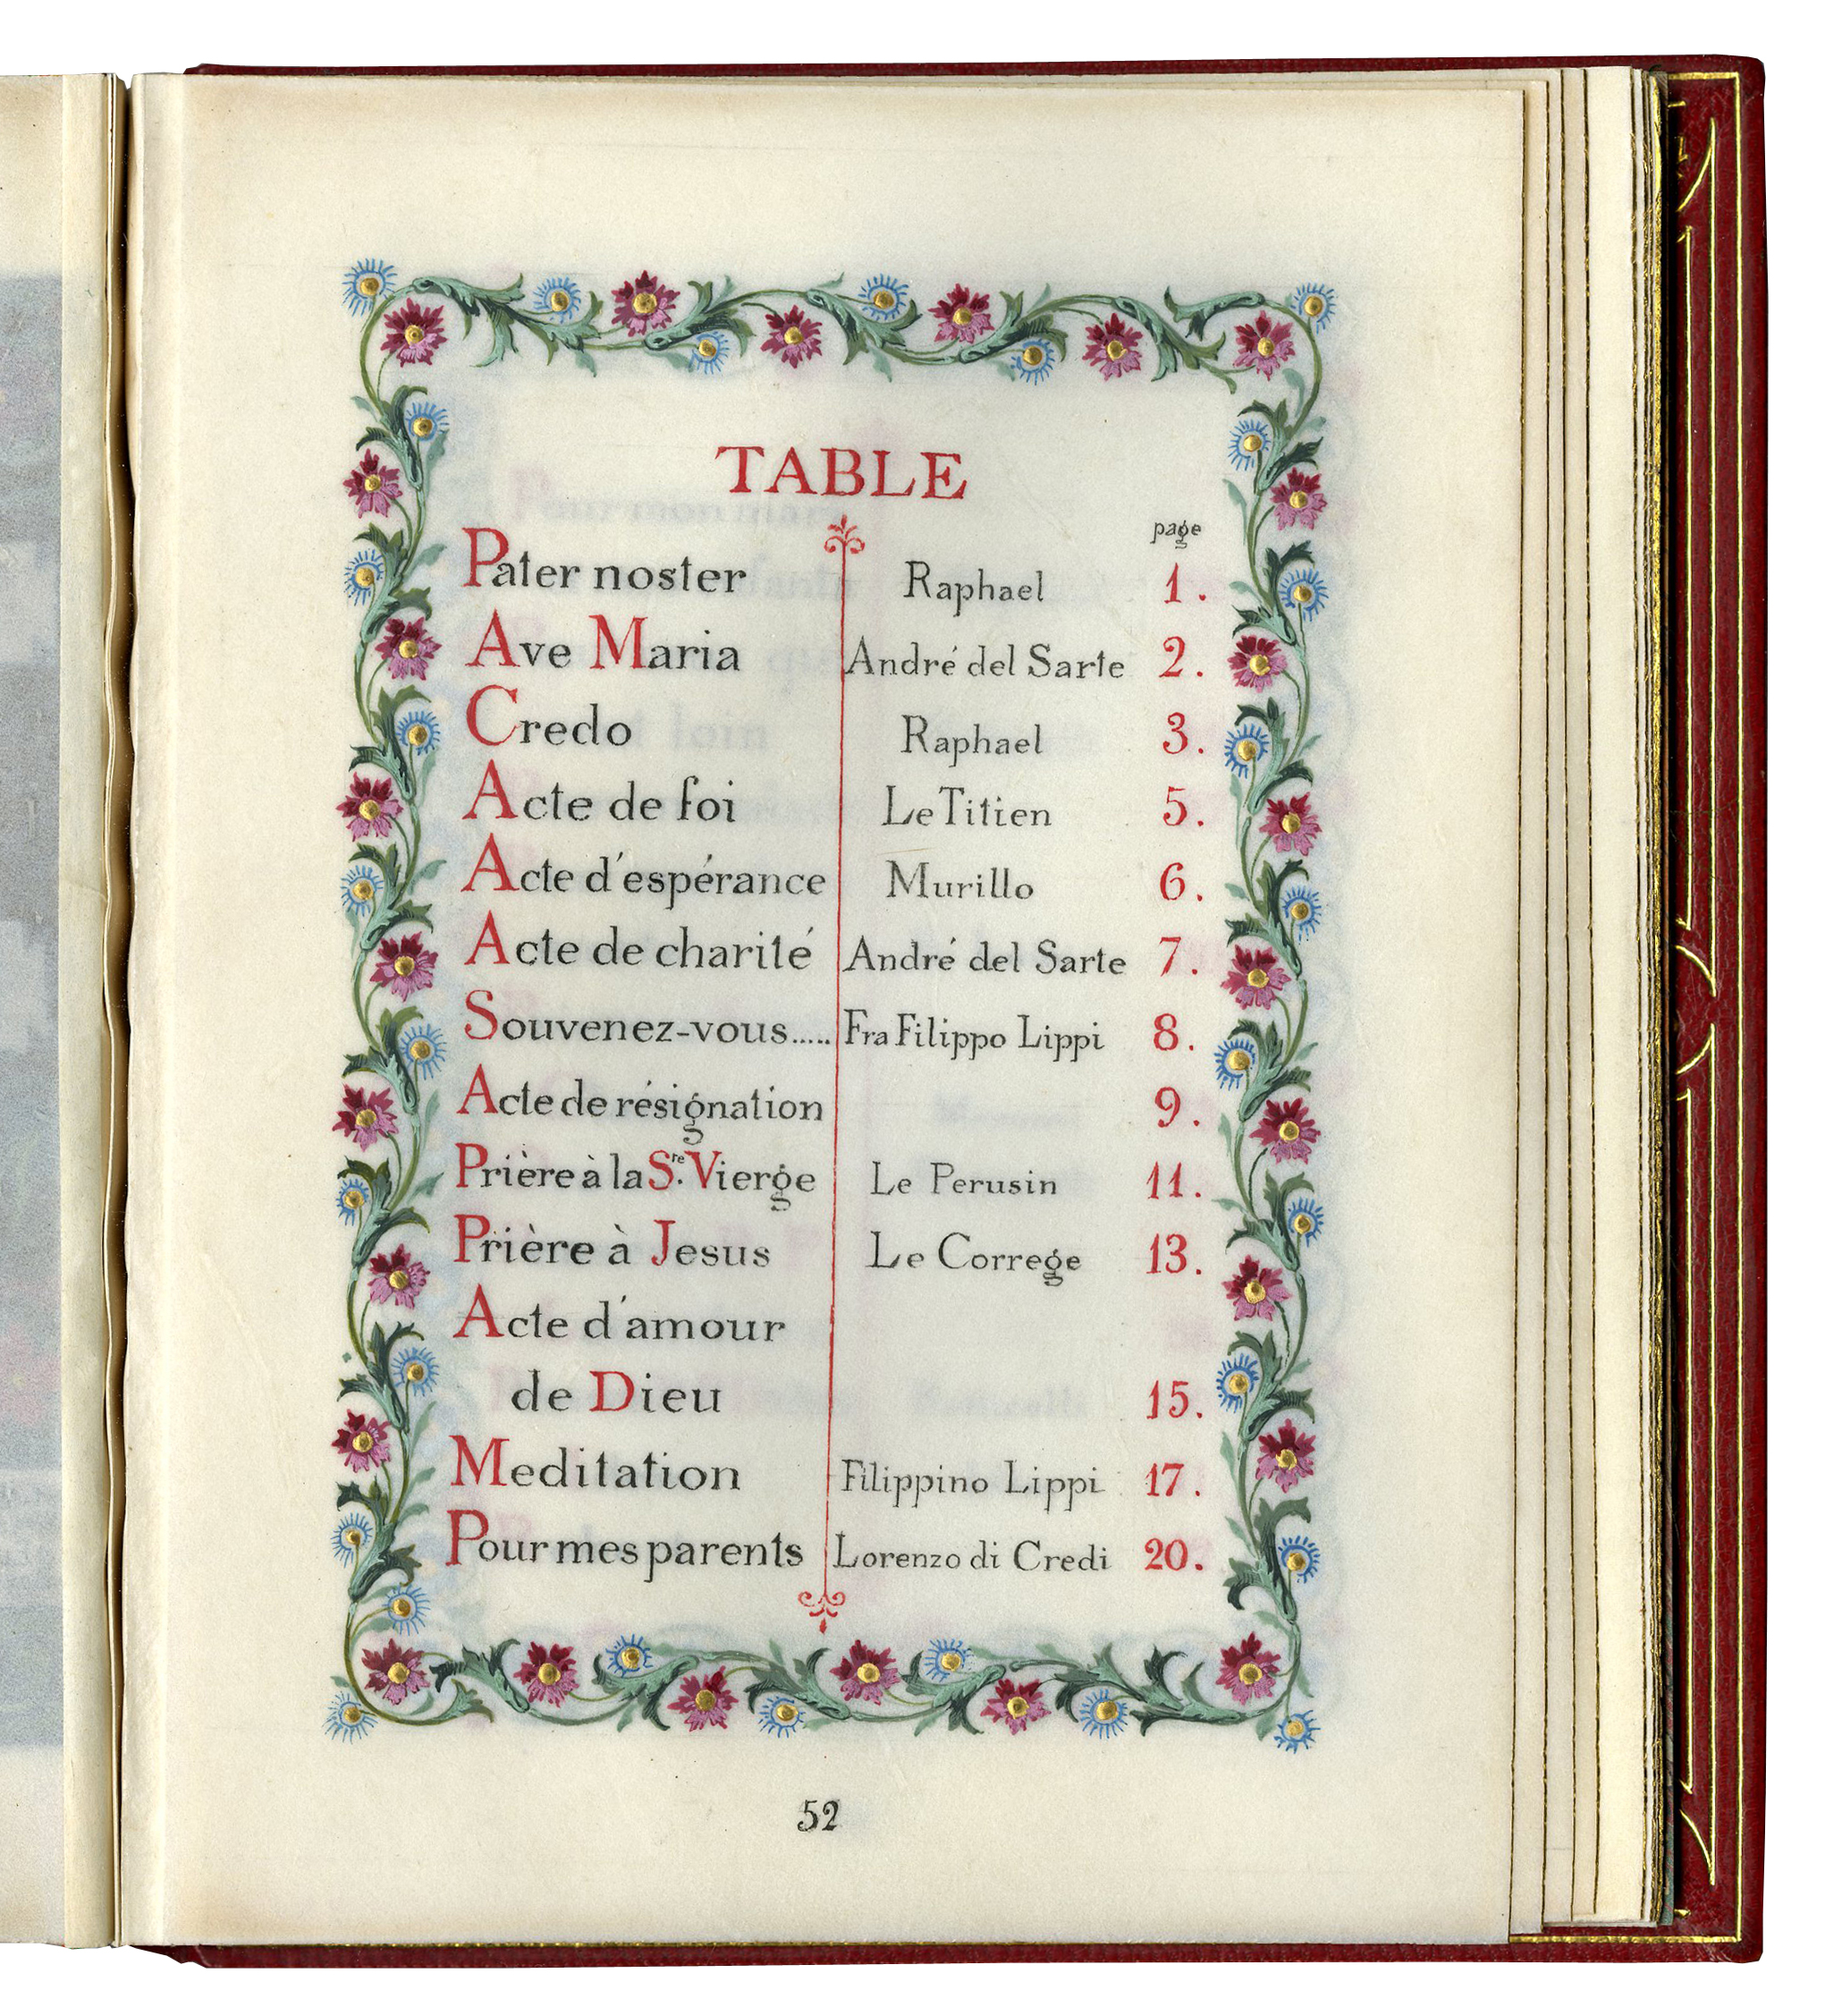 TABLE
page
Pater noster Raphael 1.
Ave Maria André del Sarte 2.
Credo Raphael 3.
Acte de foi Le Titien 5.
Acte d'espérance Murillo 6.
Acte de charité André del Sarte 7.
Souvenez-vous..... Fra Filippo Lippi 8.
Acte de résignation 9.
Prière à la Ste. Vierge Le Perusin 11.
Prière à Jesus Le Correge 13.
Acte d'amour
de Dieu 15.
Meditation Filippino Lippi 17.
Pour mes parents Lorenzo di Credi 20.
52